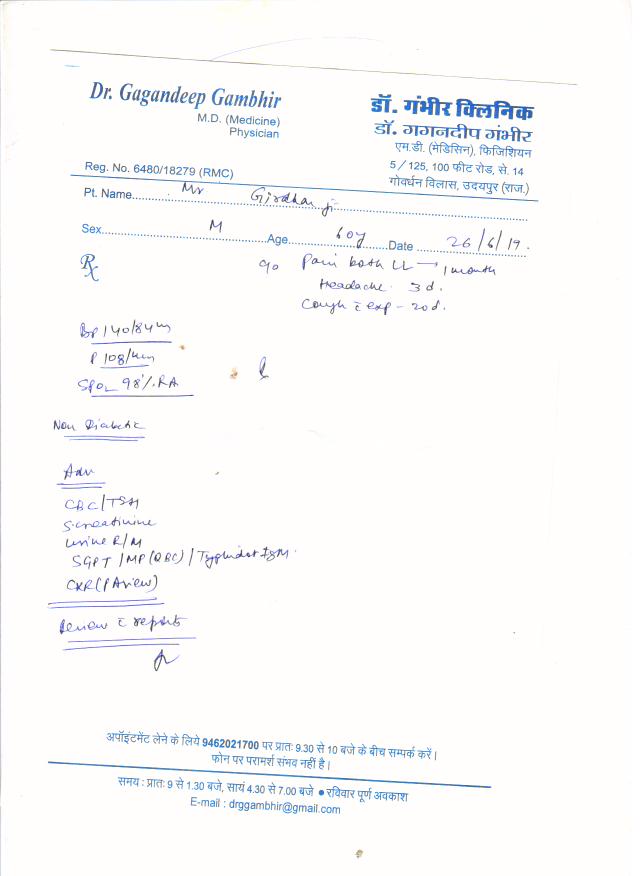 Dr. Gagandeep Gambhir
M.D. (Medicine)
Physician
Reg. No. 6480/18279 (RMC)
डॉ. गंभीर क्लिनिक
डॉ. गगनदीप गंभीर
एम.डी. (मेडिसिन), फिजिशियन
5/125, 100 फीट रोड, से. 14
गोवर्धन विलास, उदयपुर (राज.)
Pt. Name Mr Girdhar ji
Sex M Age 60y Date 26/6/19.
Rx c/o Pain both LL → 1 month
Headache 3 d.
Cough c̄ exp - 20d.
BP 140/84
P 108/min
SPO2 98%. RA
Non Diabetic
Adv
CBC/TSH
S. creatinine
Urine R/M
SGPT / MP (QBC) / Typhidot IgM.
CXR (PA view)
Review c̄ reports
अपॉइंटमेंट लेने के लिये 9462021700 पर प्रातः 9.30 से 10 बजे के बीच सम्पर्क करें।
फोन पर परामर्श संभव नहीं है।
समय : प्रातः 9 से 1.30 बजे, सायं 4.30 से 7.00 बजे ● रविवार पूर्ण अवकाश
E-mail : drggambhir@gmail.com